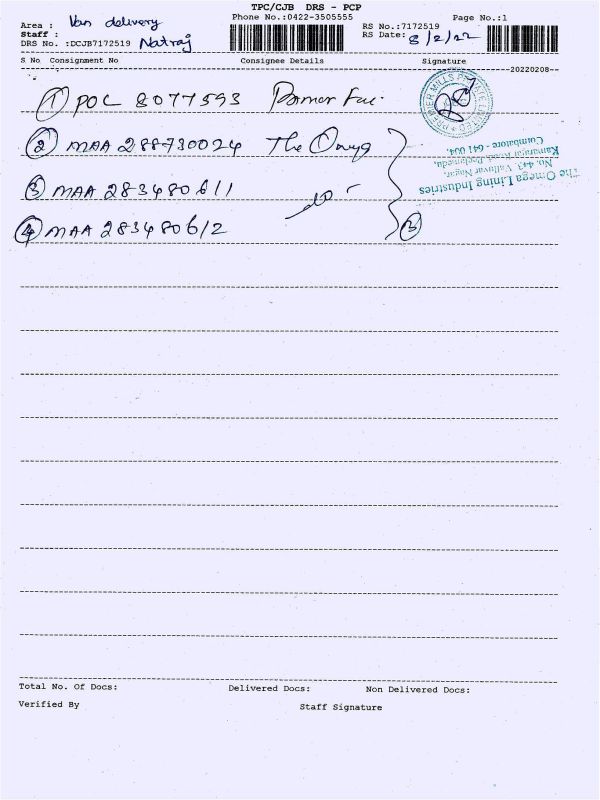 TPC/CJB DRS - PCP
Area : Van delivery
Phone No.:0422-3505555
Page No.:1
Staff :
RS No.:7172519
DRS No. :DCJB7172519 Natraj
RS Date: 8/2/22
S No Consignment No Consignee Details Signature
20220208
1 POC 8077593
2 MAA 288730024 The Omeg
3 MAA 283480611 do
4 MAA 283480612
3
PREMIER MILLS PRIVATE LIMITED
The Omega Lining Industries
No. 443, Valluvar Nagar,
Kamarajar Road, Peelamedu,
Coimbatore - 641 004.
Total No. Of Docs: Delivered Docs: Non Delivered Docs:
Verified By Staff Signature